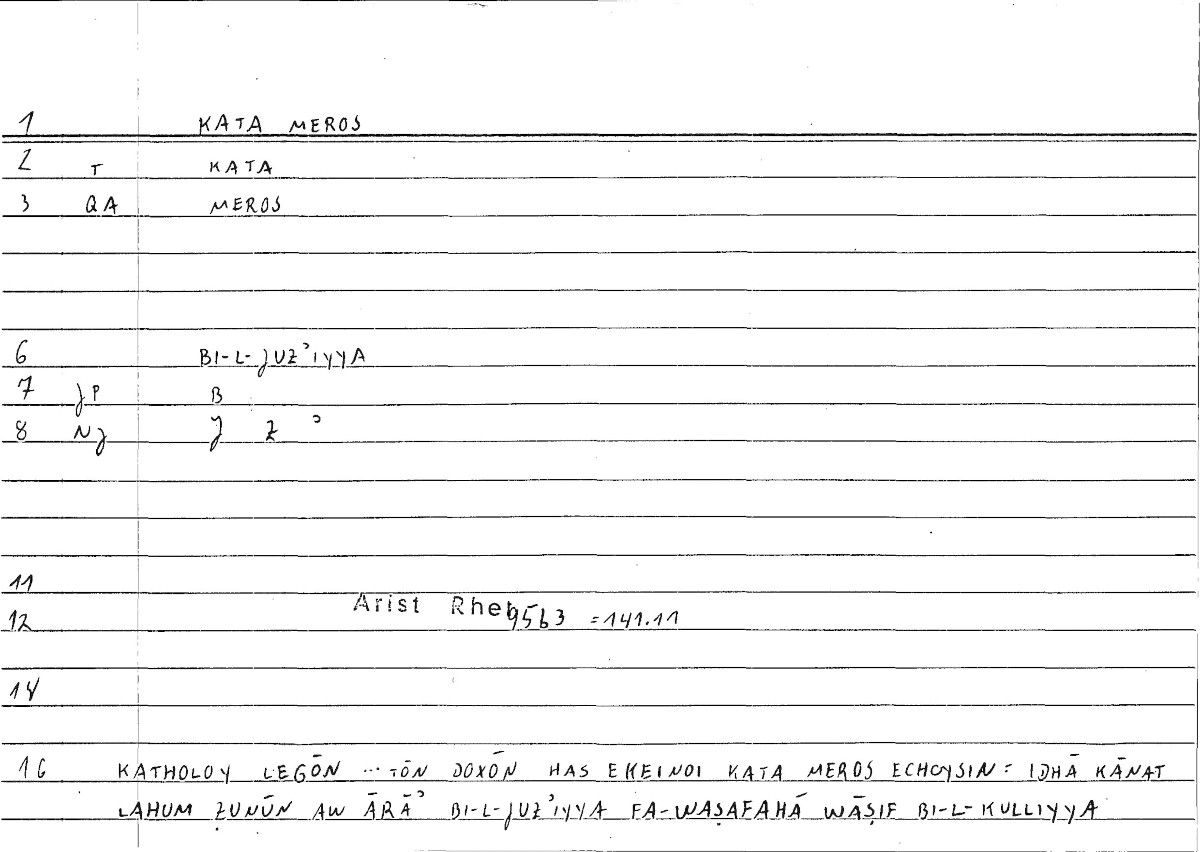 1 KATA MEROS
2 T KATA
3 QA MEROS
6 BI-L-JUZʾIYYA
7 JP B
8 NJ J Z ʾ
11
12 Arist Rhet 95b3 =141.11
14
16 KATHOLOY LEGŌN ... TŌN DOXŌN HAS EKEINOI KATA MEROS ECHOYSIN : IDHĀ KĀNAT
LAHUM ẒUNŪN AW ĀRĀʾ BI-L-JUZʾIYYA FA-WAṢAFAHĀ WĀṢIF BI-L-KULLIYYA